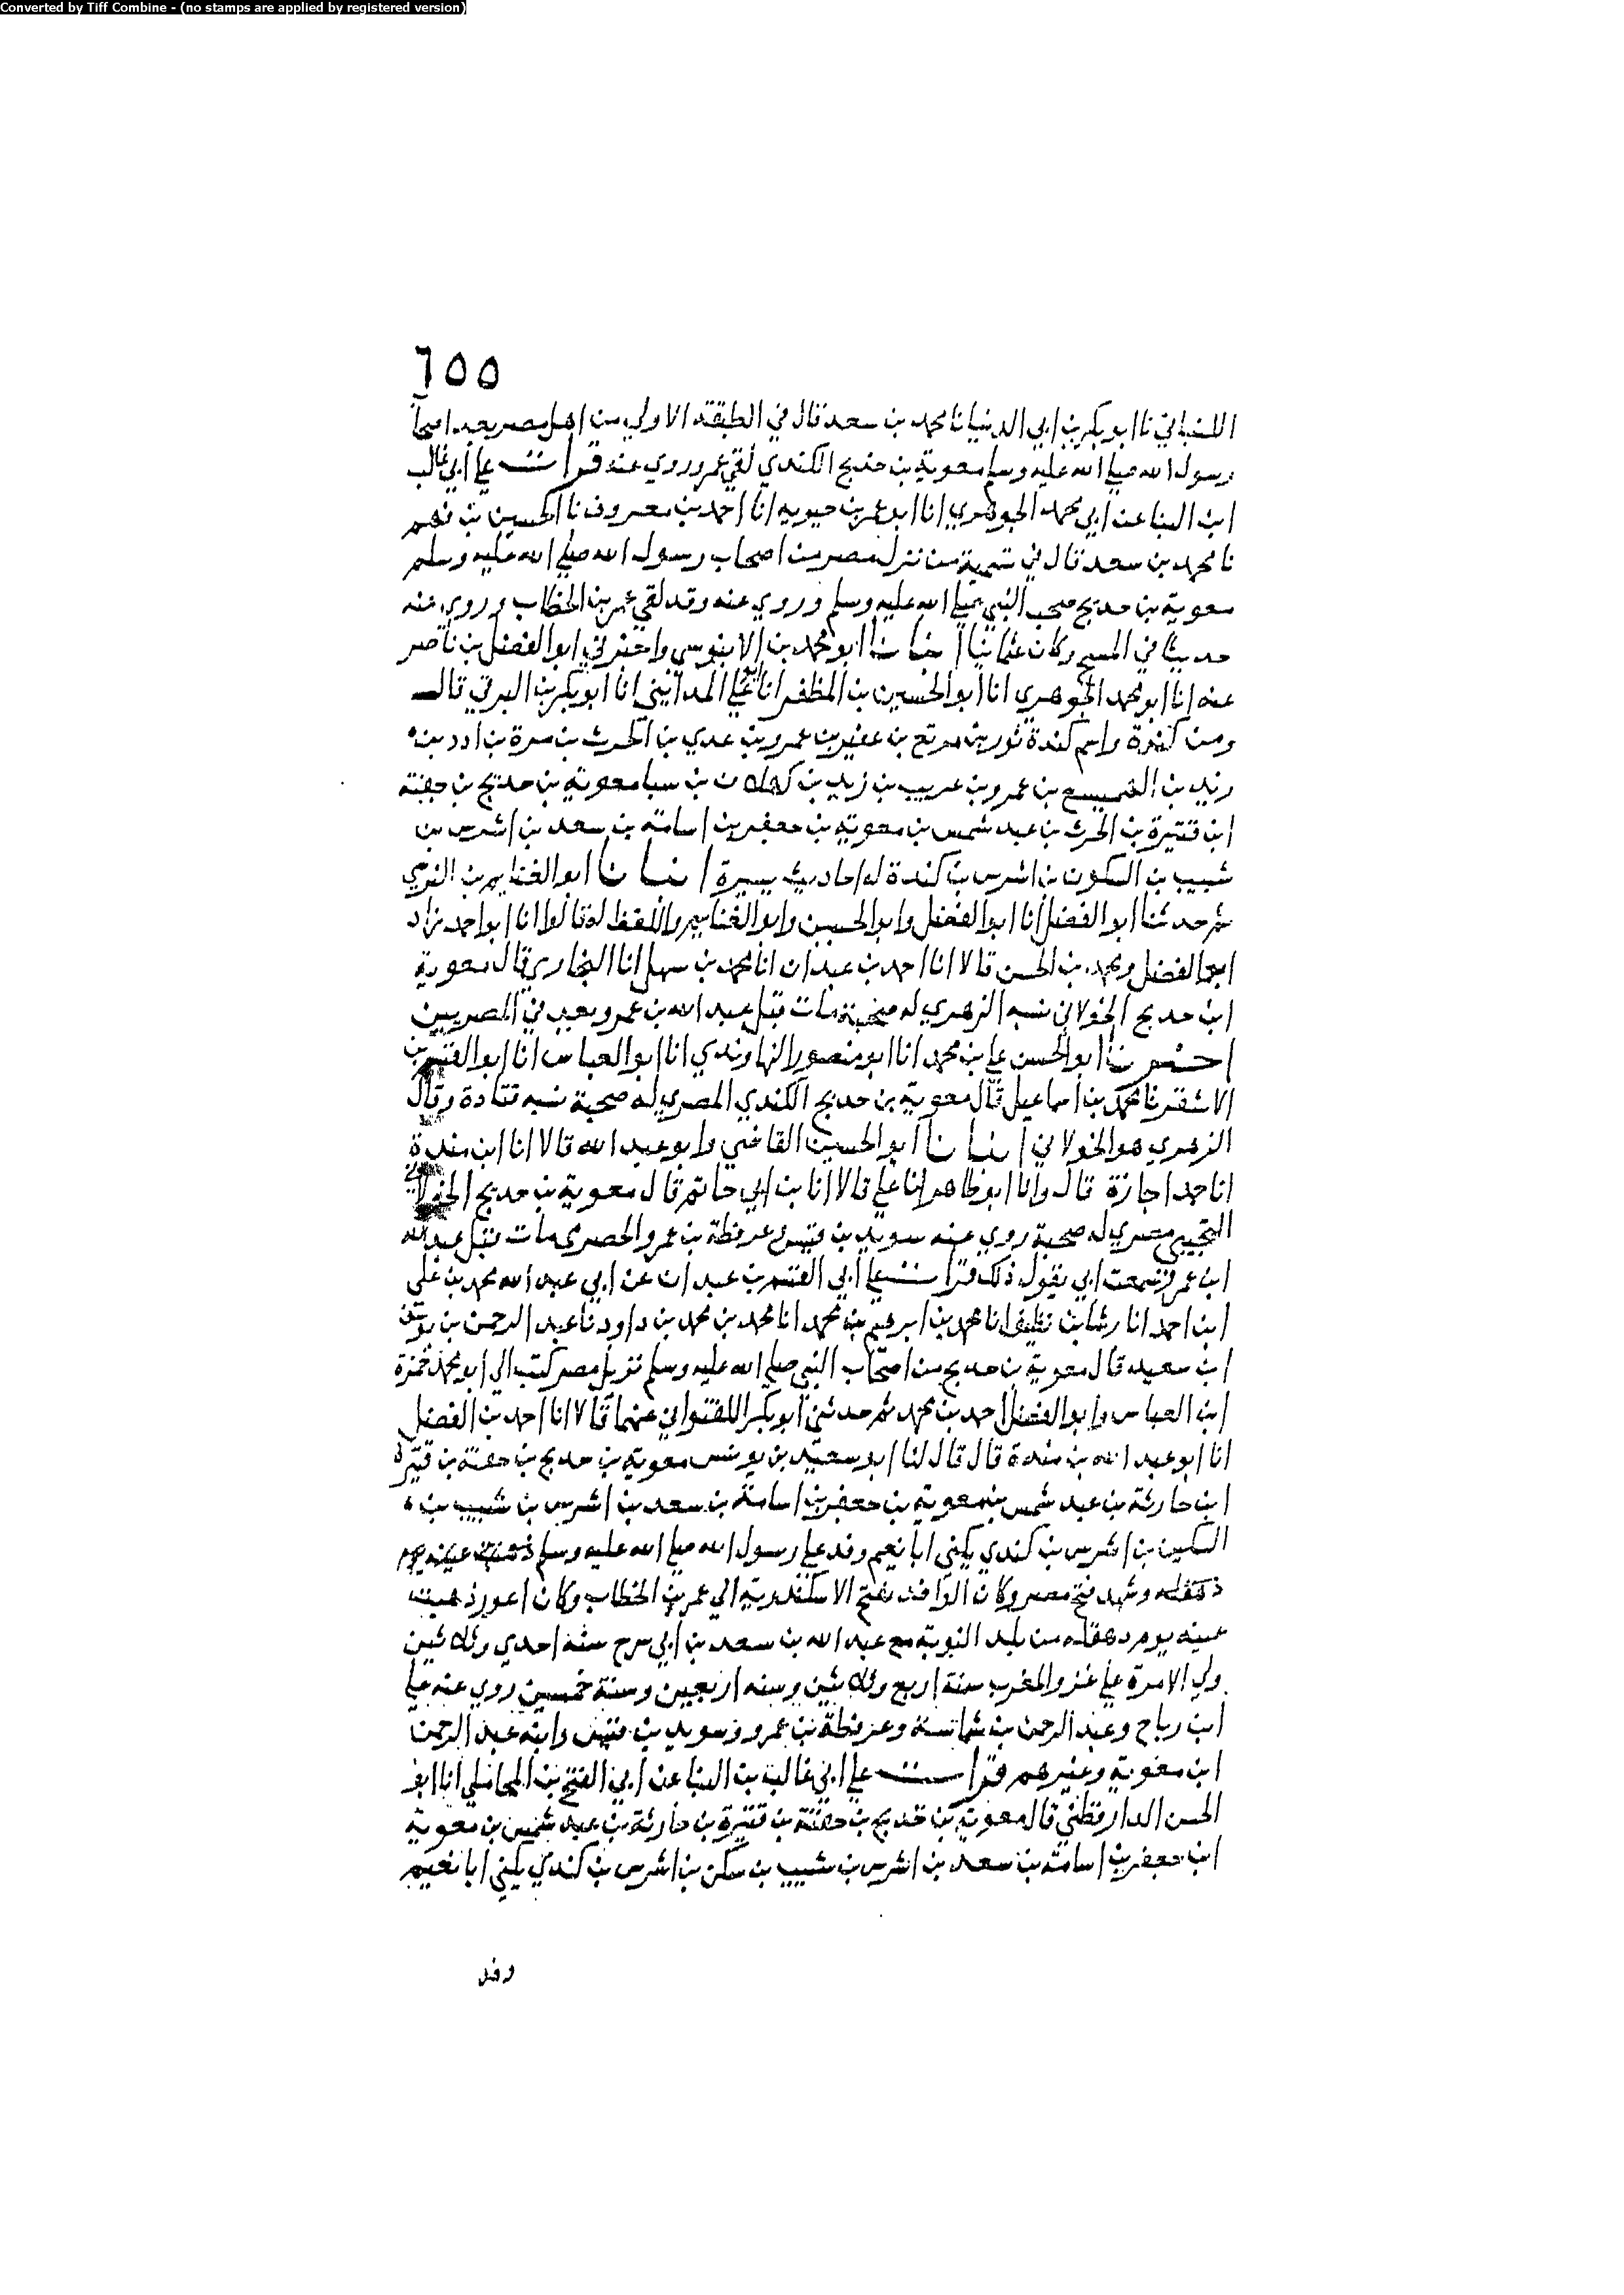 Converted by Tiff Combine - (no stamps are applied by registered version)
٦٥٥
اللنباني نا ابو بكر بن ابي الدنيا نا محمد بن سعد قال في الطبقة الاولي من اهل مصر بعد اصحا
رسول الله صلي الله عليه وسلم معوية بن حديج الكندي لقي عمر وروي عنه قرات علي ابي غالب
ابن البنا عن ابي محمد الجوهري انا ابو عمر بن حيويه انا احمد بن معروف نا الحسين بن فهم
نا محمد بن سعد قال في تسمية من نزل مصر من اصحاب رسول الله صلي الله عليه وسلم
معوية بن حديج صحب النبي صلي الله عليه وسلم وروي عنه وقد لقي عمر بن الخطاب وروي عنه
حديثا في المسح وكان عثمانيا انبانا ابو محمد بن الابنوسي واخبرني ابو الفضل بن ناصر
عنه انا ابو محمد الجوهري انا ابو الحسين بن المظفر انا ابو علي المدايني انا ابو بكر بن البرقي قال
ومن كندة واسم كندة ثور بن مرتع بن عفير بن عمرو بن عدي بن الحرث بن مرة بن ادد بن
زيد بن الهميسع بن عمرو بن عريب بن زيد بن كهلان بن سبا معوية بن حديج بن جفنة
ابن قتيرة بن الحرث بن عبد شمس بن معوية بن جعفر بن اسامة بن سعد بن اشرس بن
شبيب بن السكون بن اشرس بن كندة له احاديث يسيرة انبانا ابو الغنايم بن النرسي
ثم حدثنا ابو الفضل انا ابو الفضل وابو الحسين وابو الغنايم واللفظ له قالوا انا ابو احمد زاد
ابو الفضل ومحمد بن الحسن قالا انا احمد بن عبدان انا محمد بن سهل انا البخاري قال معوية
ابن حديج الخولاني نسبه الزهري له صحبة مات قبل عبد الله بن عمرو يعد في المصريين
اخبرنا ابو الحسن علي بن محمد انا ابو منصور النهاوندي انا ابو العباس انا ابو القسم بن
الاشقر نا محمد بن اسماعيل قال معوية بن حديج الكندي المصري له صحبة نسبه قتادة وقال
الزهري هو الخولاني انبانا ابو الحسين القاضي وابو عبد الله قالا انا ابن مندة
انا حمد اجازة قال وانا ابو طاهر انا علي قالا انا بن ابي حاتم قال معوية بن حديج الخولاني
التجيبي مصري له صحبة روي عنه سويد بن قيس عرفطة بن عمرو الحضرمي مات قبل عبد الله
ابن عمر سمعت ابي يقول ذلك قرات علي ابي القسم بن عبدان عن ابي عبد الله محمد بن علي
ابن احمد انا رشا بن نظيف انا محمد بن ابرهيم بن محمد انا محمد بن محمد بن داود نا عبد الرحمن بن يوسف
ابن سعيد قال معوية بن حديج من اصحاب النبي صلي الله عليه وسلم نزيل مصر كتب الي ابو محمد حمزة
ابن العباس وابو الفضل احمد بن محمد ثم حدثني ابو بكر اللفتواني عنهما قالا انا احمد بن الفضل
انا ابو عبد الله بن مندة قال قال لنا ابو سعيد بن يونس معوية بن حديج بن جفنة بن قتيرة
ابن حارثة بن عبد شمس بن معوية بن جعفر بن اسامة بن سعد بن اشرس بن شبيب بن
السكين بن اشرس بن كندي يكني ابا نعيم وفد علي رسول الله صلي الله عليه وسلم ذهبت عينه يوم
دمقله وشهد فتح مصر وكان الوافد بفتح الاسكندرية الي عمر بن الخطاب وكان اعور ذهبت
عينه يوم دمقله من بلد النوبة مع عبد الله بن سعد بن ابي سرح سنة احدي وثلاثين
ولي الامرة علي غزو المغرب سنة اربع وثلاثين وسنة اربعين وسنة خمسين روي عنه علي
ابن رباح وعبد الرحمن بن شماسة وعرفطة بن عمرو وسويد بن قيس وابنه عبد الرحمن
ابن معوية وغيرهم قرات علي ابي غالب بن البنا عن ابي الفتح بن المحاملي انا ابو
الحسن الدارقطني قال معوية بن حديج بن جفنة بن قتيرة بن حارثة بن عبد شمس بن معوية
ابن جعفر بن اسامة بن سعد بن اشرس بن شبيب بن سكن بن اشرس بن كندي يكني ابا نعيم
وفد